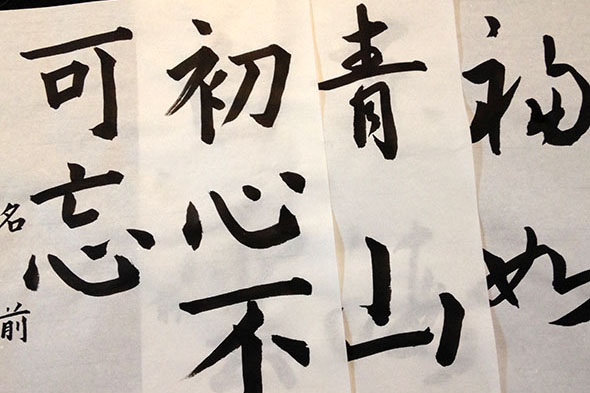 福如
青山
初心不
可忘
名前